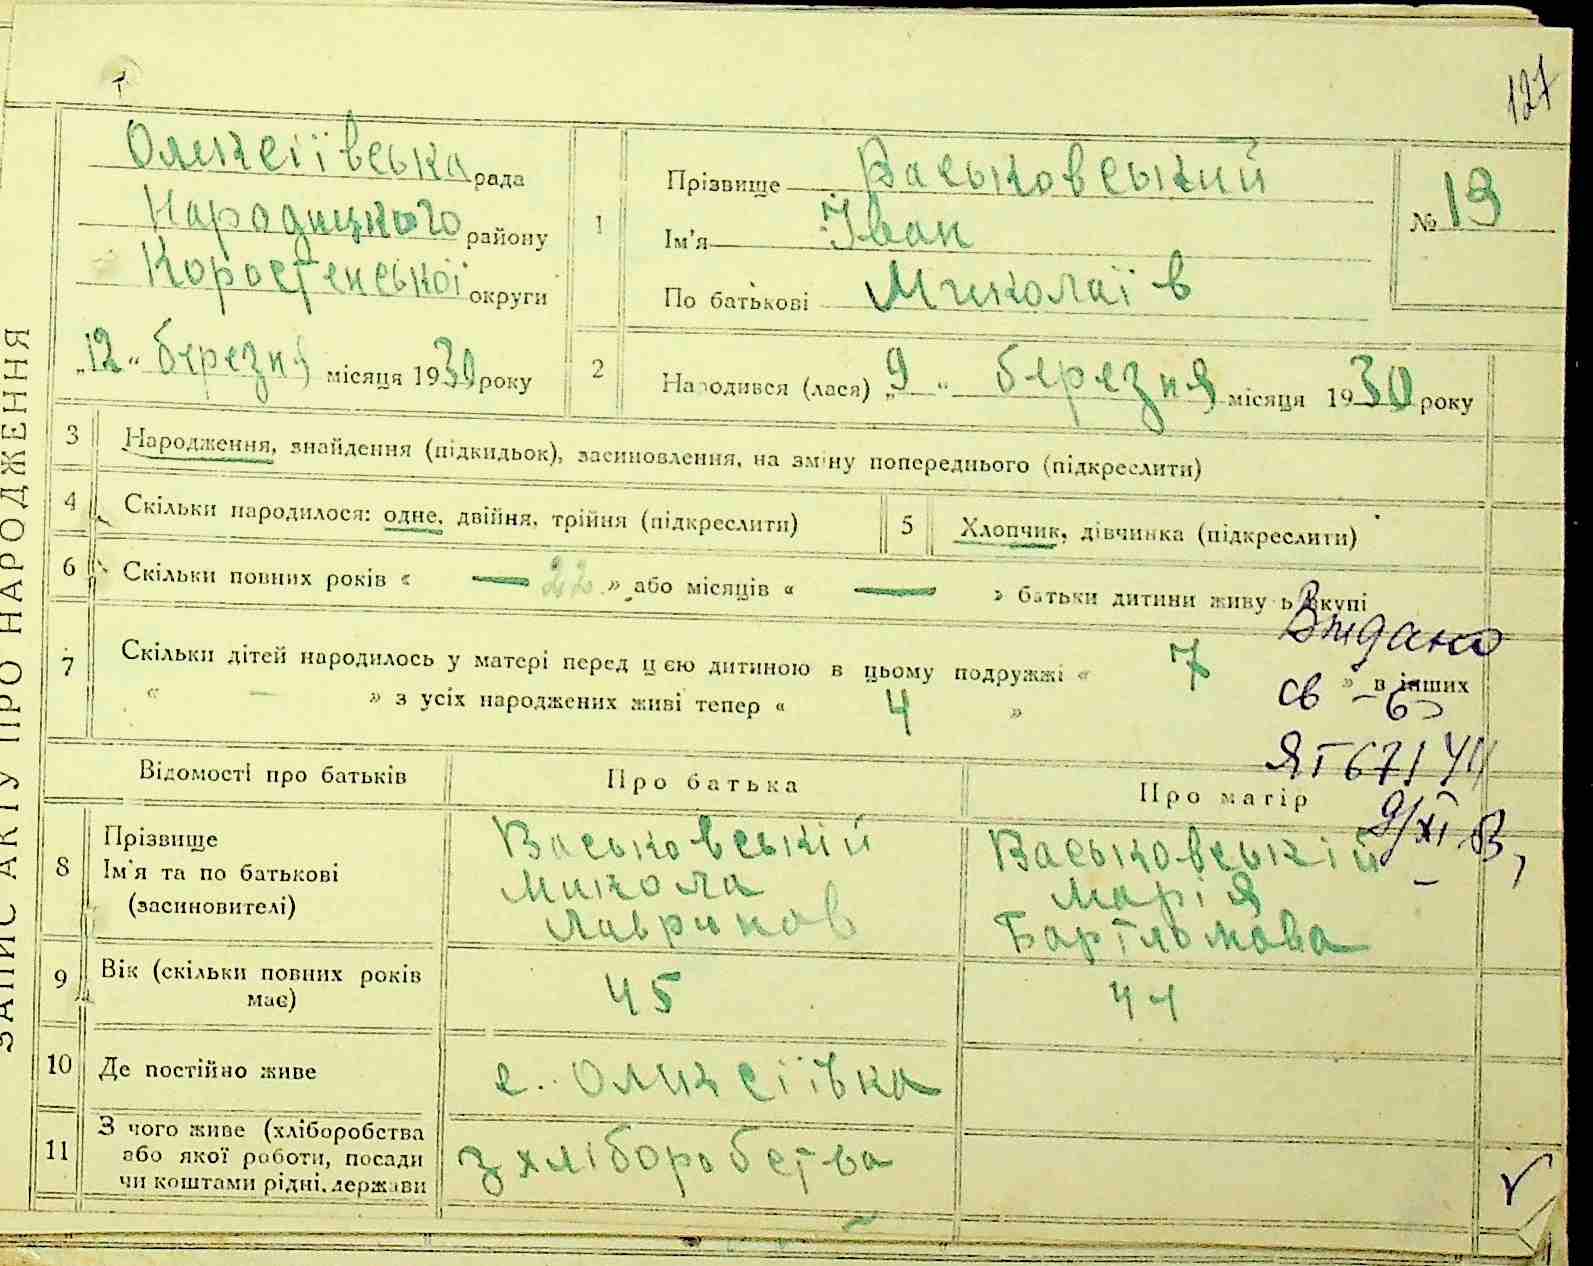 127
ЗАПИС АКТУ ПРО НАРОДЖЕННЯ
Оликсіївська рада
Народицького району
Коростенської округи
„12“ березня місяця 1930 року
1
Прізвище Васьковський
Ім'я Іван
По батькові Миколаїв
№ 19
2
Народився (лася) „9“ березня місяця 1930 року
3 Народження, знайдення (підкидьок), засиновлення, на зміну попереднього (підкреслити)
4 Скільки народилося: одне, двійня, трійня (підкреслити)
5 Хлопчик, дівчинка (підкреслити)
6 Скільки повних років « — 22 » або місяців « — » батьки дитини живуть вкупі
7 Скільки дітей народилось у матері перед цією дитиною в цьому подружжі « 7 » в інших
« — » з усіх народжених живі тепер « 4 »
Видано
св
ЯТ 67144
Відомості про батьків
Про батька
Про матір
8 Прізвище
Ім'я та по батькові
(засиновителі)
Васьковській
Микола
Лавринов
Васьковській
Марія
Бартломова
9 Вік (скільки повних років
має)
45
44
10 Де постійно живе
с. Оликсіївка
11 З чого живе (хліборобства
або якої роботи, посади
чи коштами рідні, держави
з хліборобства